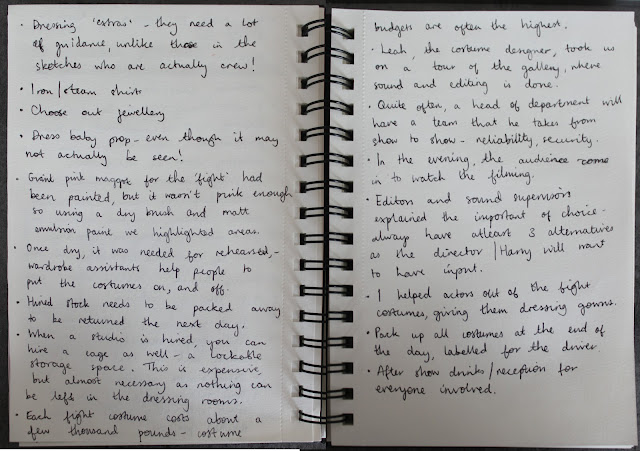 · Dressing 'extras' - they need a lot
of guidance, unlike those in the
sketches who are actually crew!
· Iron/steam shirts
· Choose out jewellery
· Dress baby prop - even though it may
not actually be seen!
· Giant pink maggot for the 'fight' had
been painted, but it wasn't pink enough
so using a dry brush and matt
emulsion paint we highlighted areas.
· Once dry, it was needed for rehearsal, -
wardrobe assistants help people to
put the costumes on, and off.
· Hired stock needs to be packed away
to be returned the next day.
· When a studio is hired, you can
hire a cage as well - a lockable
storage space. This is expensive,
but almost necessary as nothing can
be left in the dressing rooms.
· Each fight costume costs about a
few thousand pounds - costume
budgets are often the highest.
· Leah, the costume designer, took us
on a tour of the gallery, where
sound and editing is done.
· Quite often, a head of department will
have a team that he takes from
show to show - reliability, security.
· In the evening, the audience come
in to watch the filming.
· Editors and sound supervisors
explained the important of choice -
always have atleast 3 alternatives
as the director/Harry will want
to have input.
· I helped actors out of the fight
costumes, giving them dressing gowns.
· Pack up all costumes at the end of
the day, labelled for the driver.
· After show drinks/reception for
everyone involved.